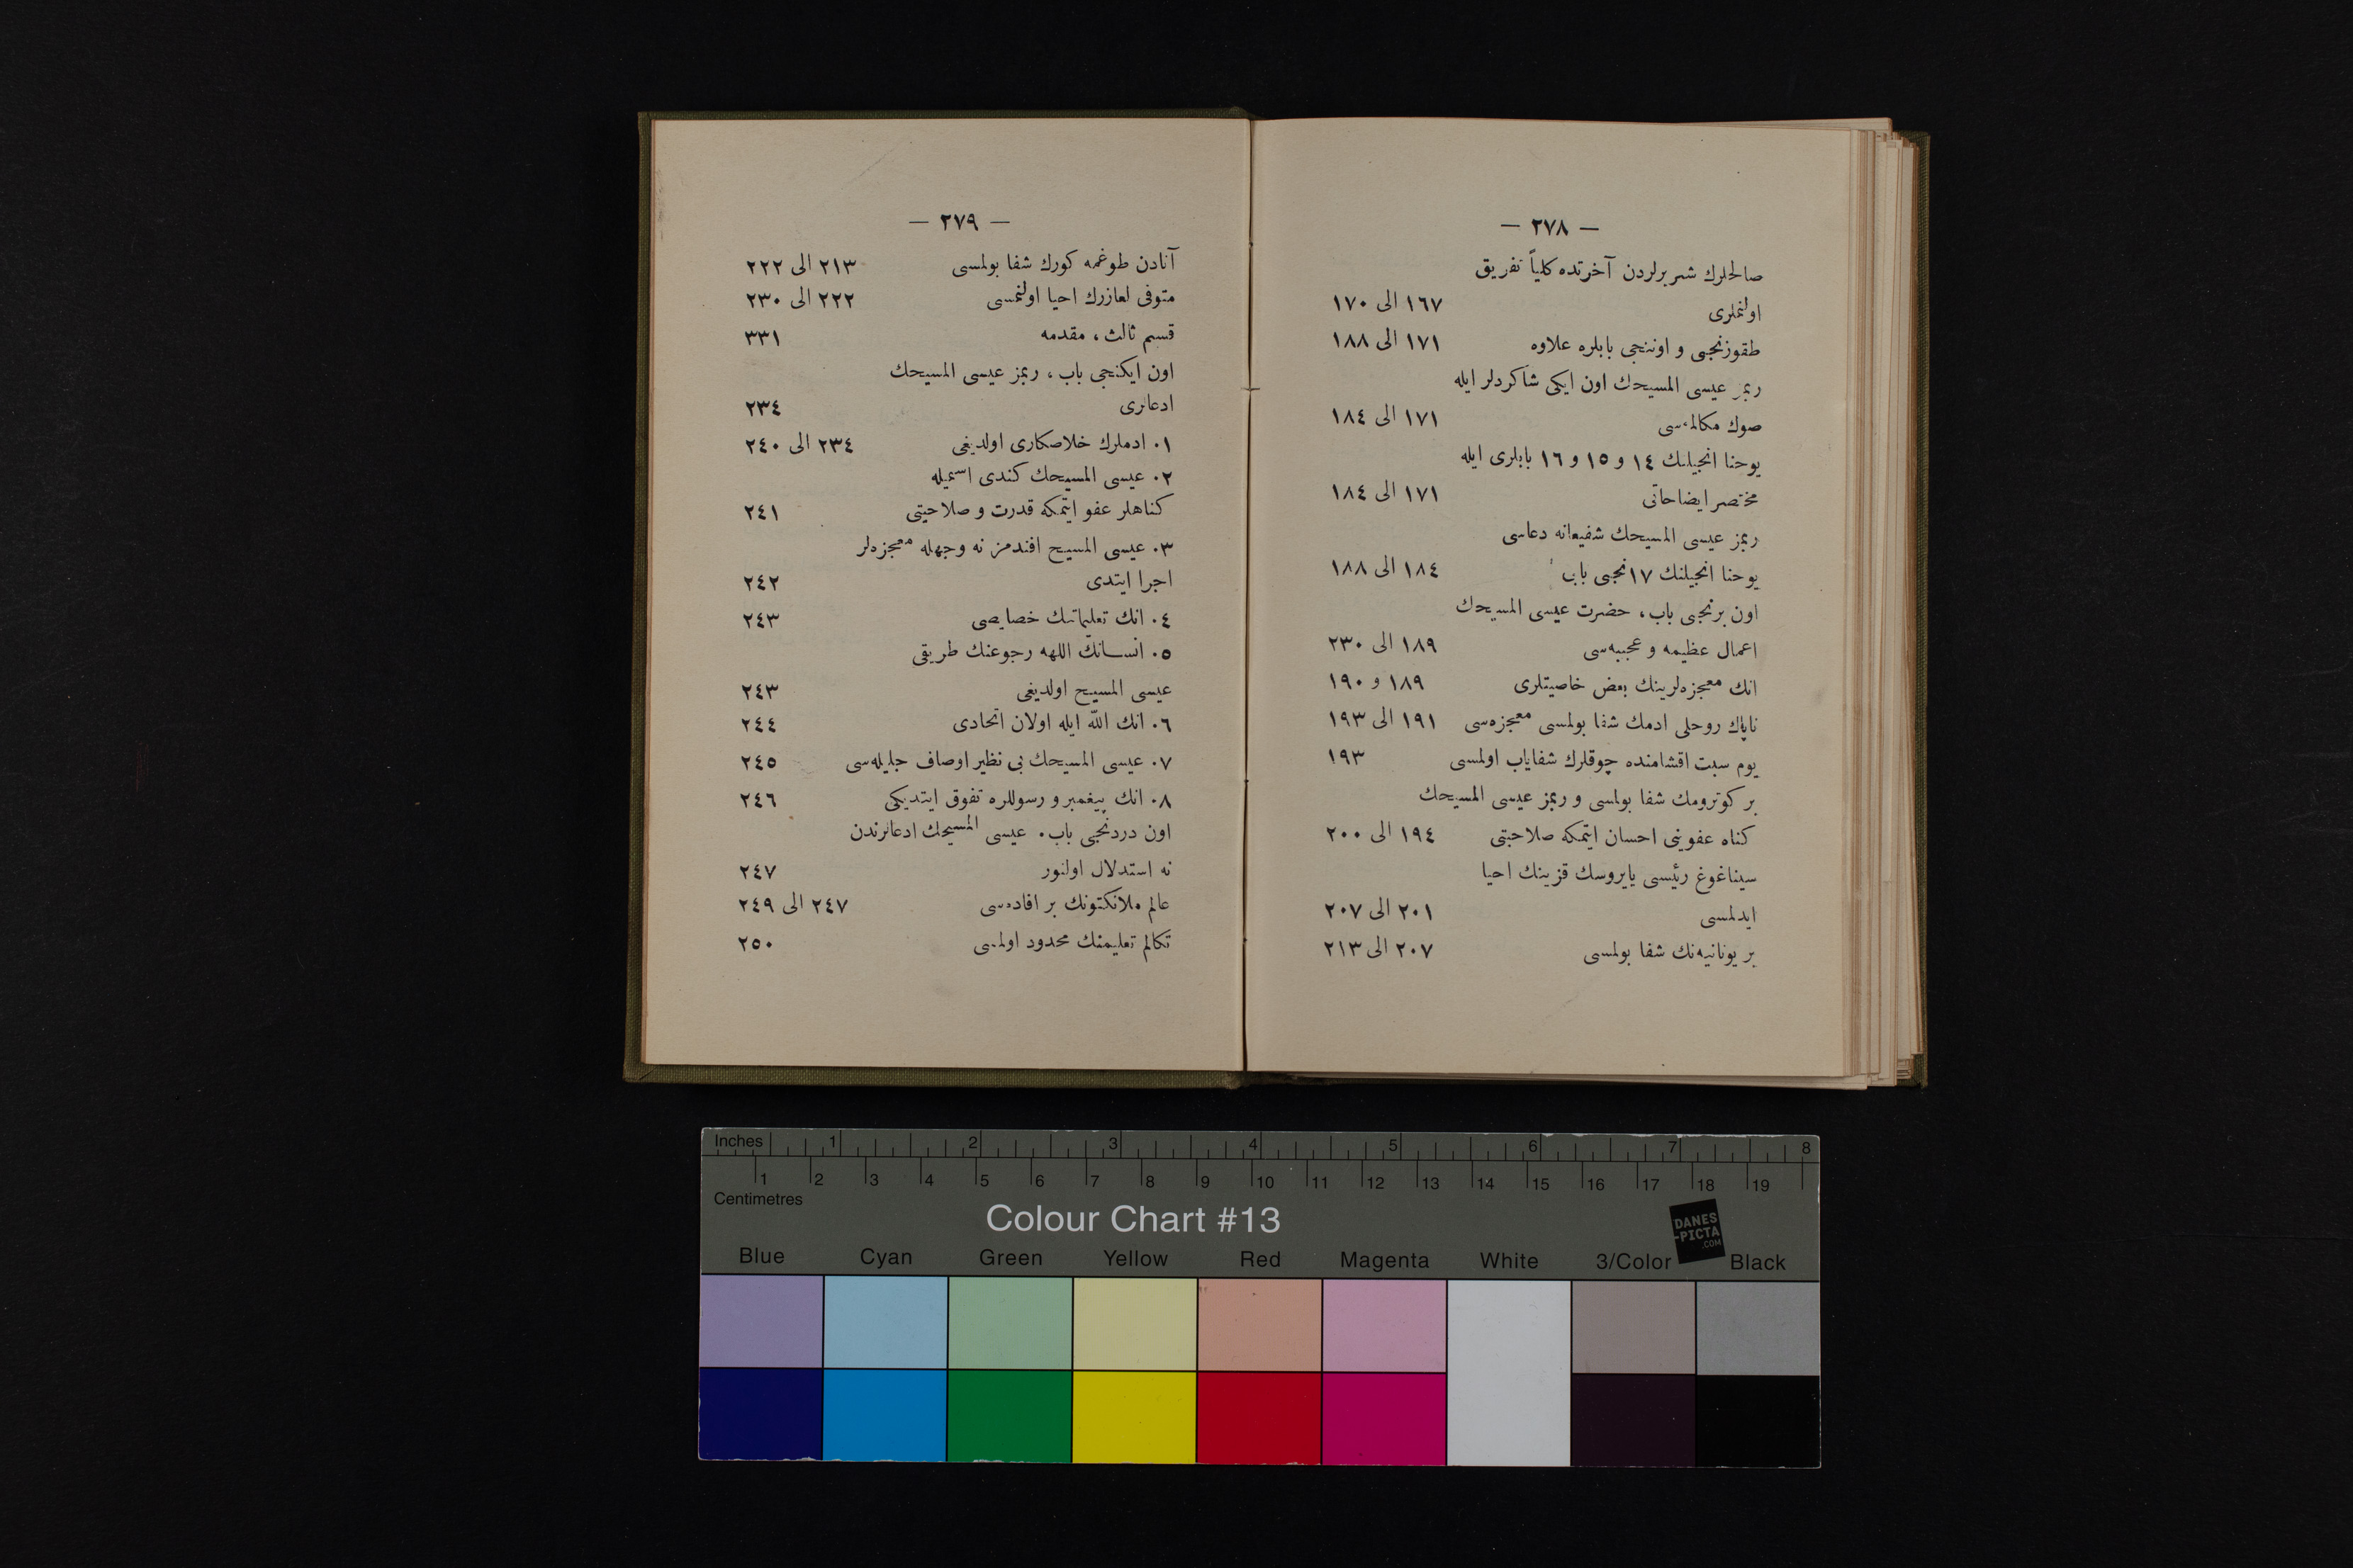 — ٢٧٨ —
صالحلرك شریرلردن آخرتده كلیاً تفریق
اولنملری ١٦٧ الی ١٧٠
طقوزنجی و اوننجی بابلره علاوه ١٧١ الی ١٨٨
ربمز عیسی المسیحك اون ایكی شاكردلر ایله
صوك مكالمه‌سی ١٧١ الی ١٨٤
یوحنا انجیلنك ١٤ و ١٥ و ١٦ بابلری ایله
مختصر ایضاحاتی ١٧١ الی ١٨٤
ربمز عیسی المسیحك شفیعانه دعاسی
یوحنا انجیلنك ١٧نجی باب ١٨٤ الی ١٨٨
اون برنجی باب، حضرت عیسی المسیحك
اعمال عظیمه و عجیبه‌سی ١٨٩ الی ٢٣٠
انك معجزه‌لرینك بعض خاصیتلری ١٨٩ و ١٩٠
ناپاك روحلی ادمك شفا بولمسی معجزه‌سی ١٩١ الی ١٩٣
یوم سبت اقشامنده چوقلرك شفایاب اولمسی ١٩٣
بر كوترومك شفا بولمسی و ربمز عیسی المسیحك
كناه عفوینی احسان ایتمكه صلاحیتی ١٩٤ الی ٢٠٠
سیناغوغ رئیسی یایروسك قزینك احیا
ایدلمسی ٢٠١ الی ٢٠٧
بر یونانیه‌نك شفا بولمسی ٢٠٧ الی ٢١٣
— ٢٧٩ —
آنادن طوغمه كورك شفا بولمسی ٢١٣ الی ٢٢٢
متوفی لعازرك احیا اولنمسی ٢٢٢ الی ٢٣٠
قسم ثالث، مقدمه ٣٣١
اون ایكنجی باب، ربمز عیسی المسیحك
ادعالری ٢٣٤
١٠ ادملرك خلاصكاری اولدیغی ٢٣٤ الی ٢٤٠
٢٠ عیسی المسیحك كندی اسمیله
كناهلر عفو ایتمكه قدرت و صلاحیتی ٢٤١
٣٠ عیسی المسیح افندمز نه وجهله معجزه‌لر
اجرا ایتدی ٢٤٢
٤٠ انك تعلیماتنك خصایصی ٢٤٣
٥٠ انسانك اللهه رجوعنك طریقی
عیسی المسیح اولدیغی ٢٤٣
٦٠ انك الله ایله اولان اتحادی ٢٤٤
٧٠ عیسی المسیحك بی نظیر اوصاف جلیله‌سی ٢٤٥
٨٠ انك پیغمبر و رسوللره تفوق ایتدیكی ٢٤٦
اون دردنجی باب. عیسی المسیحك ادعالرندن
نه استدلال اولنور ٢٤٧
عالم ملانكتونك بر افاده‌سی ٢٤٧ الی ٢٤٩
تكالم تعلیمنك محدود اولمسی ٢٥٠
Inches 1 2 3 4 5 6 7 8
1 2 3 4 5 6 7 8 9 10 11 12 13 14 15 16 17 18 19
Centimetres
Colour Chart #13
DANES
-PICTA
.COM
Blue Cyan Green Yellow Red Magenta White 3/Color Black